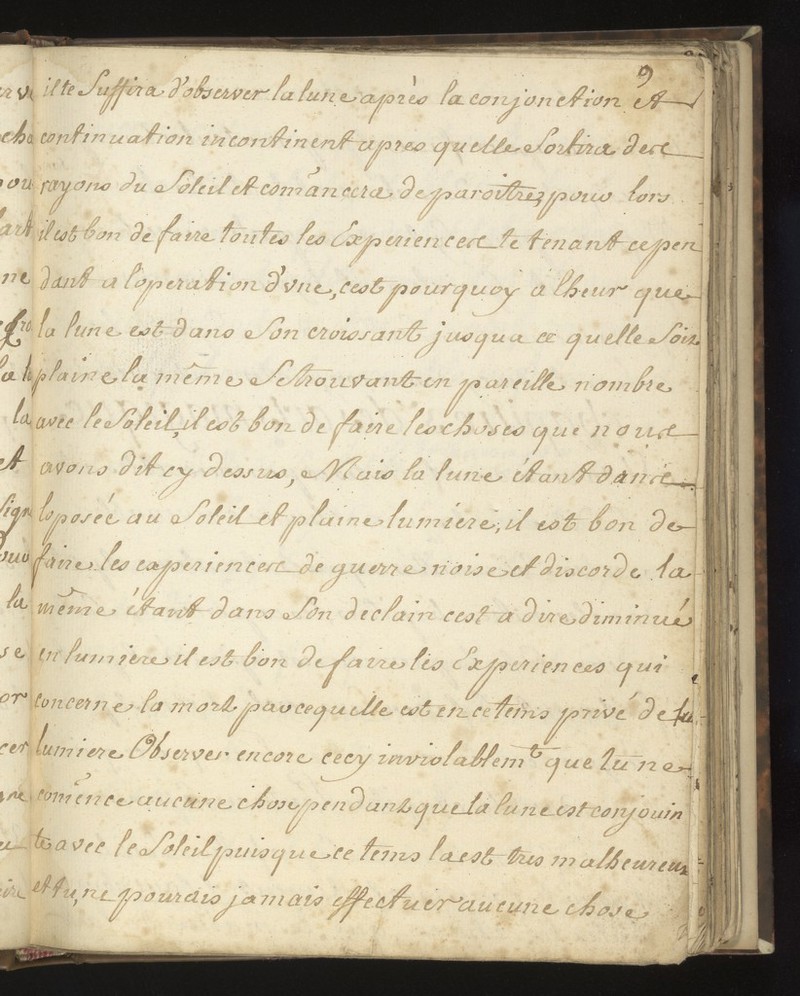 9
il te Suffira d'observer la lune après la conjonction et
continuation incontinent apres quelle Sortira des
rayons du Soleil et coman̄cera de paroitre, pour lors
il est bon de faire toutes les Experiences te tenant cepen
dant a l'operation d'vne, cest pourquoy a lheur que
la lune est dans Son croissant jusqua ce quelle Soit
plaine la même Setrouvant en pareille nombre
avec le Soleil, il est bon de faire les choses que nous
avons dit cy dessus, Mais la lune étant dans
loposée au Soleil et plaine lumiere, il est bon de
faire les experiences de guerre noise et discorde la
même étant dans Son declain cest a dire diminué
en lumiere il est bon de faire les Experiences qui
concerne la mort parcequelle est en ce tems privé de
lumiere Observer encore cecy inviolablemt que tu ne
com̄ence aucune chose pendant que la lune est conjouin
te avec le Soleil puisque ce tems la est tres malheureux
et tu ne pourais jamais effectuer aucune chose